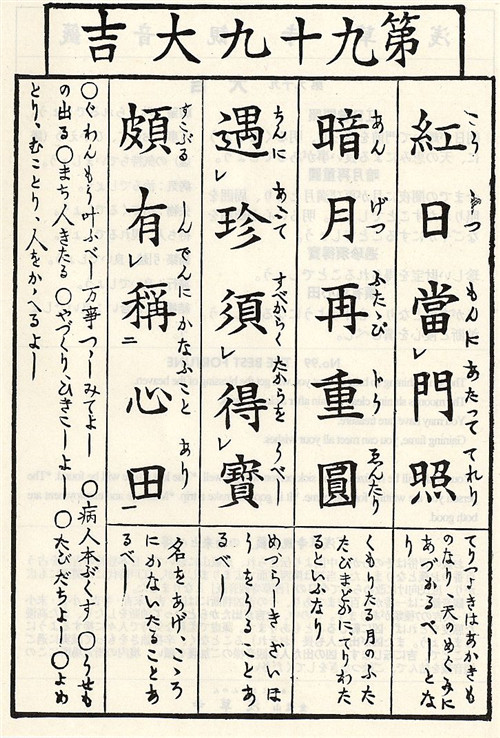 第九十九大吉
こう じつ もんに あたつて てれり
紅日當レ門照
てりつよきはあかきも
のなり
天のめぐみに
あづかるべしとな
り
あん げつ ふたゝび ゑんたり
暗月再重圓
くもりたる月のふた
たびまどかにてりわた
るといふなり
ちんに あふて すべからく たからを うべし
遇レ珍須レ得レ寶
めづらしきざいほ
うをうることあ
るべし
すこぶる しんでんに かなふこと あり
頗有レ稱二心田一
名をあげこゝろ
にかないたことあ
るべし
〇ぐわんもう叶ふべし万事つゝしみてよし 〇病人本ぷくす 〇うせも
の出る〇まち人きたる〇やづくりひきこしよし〇たびだちよし〇よめ
とりむことり、人をかゝへるよし